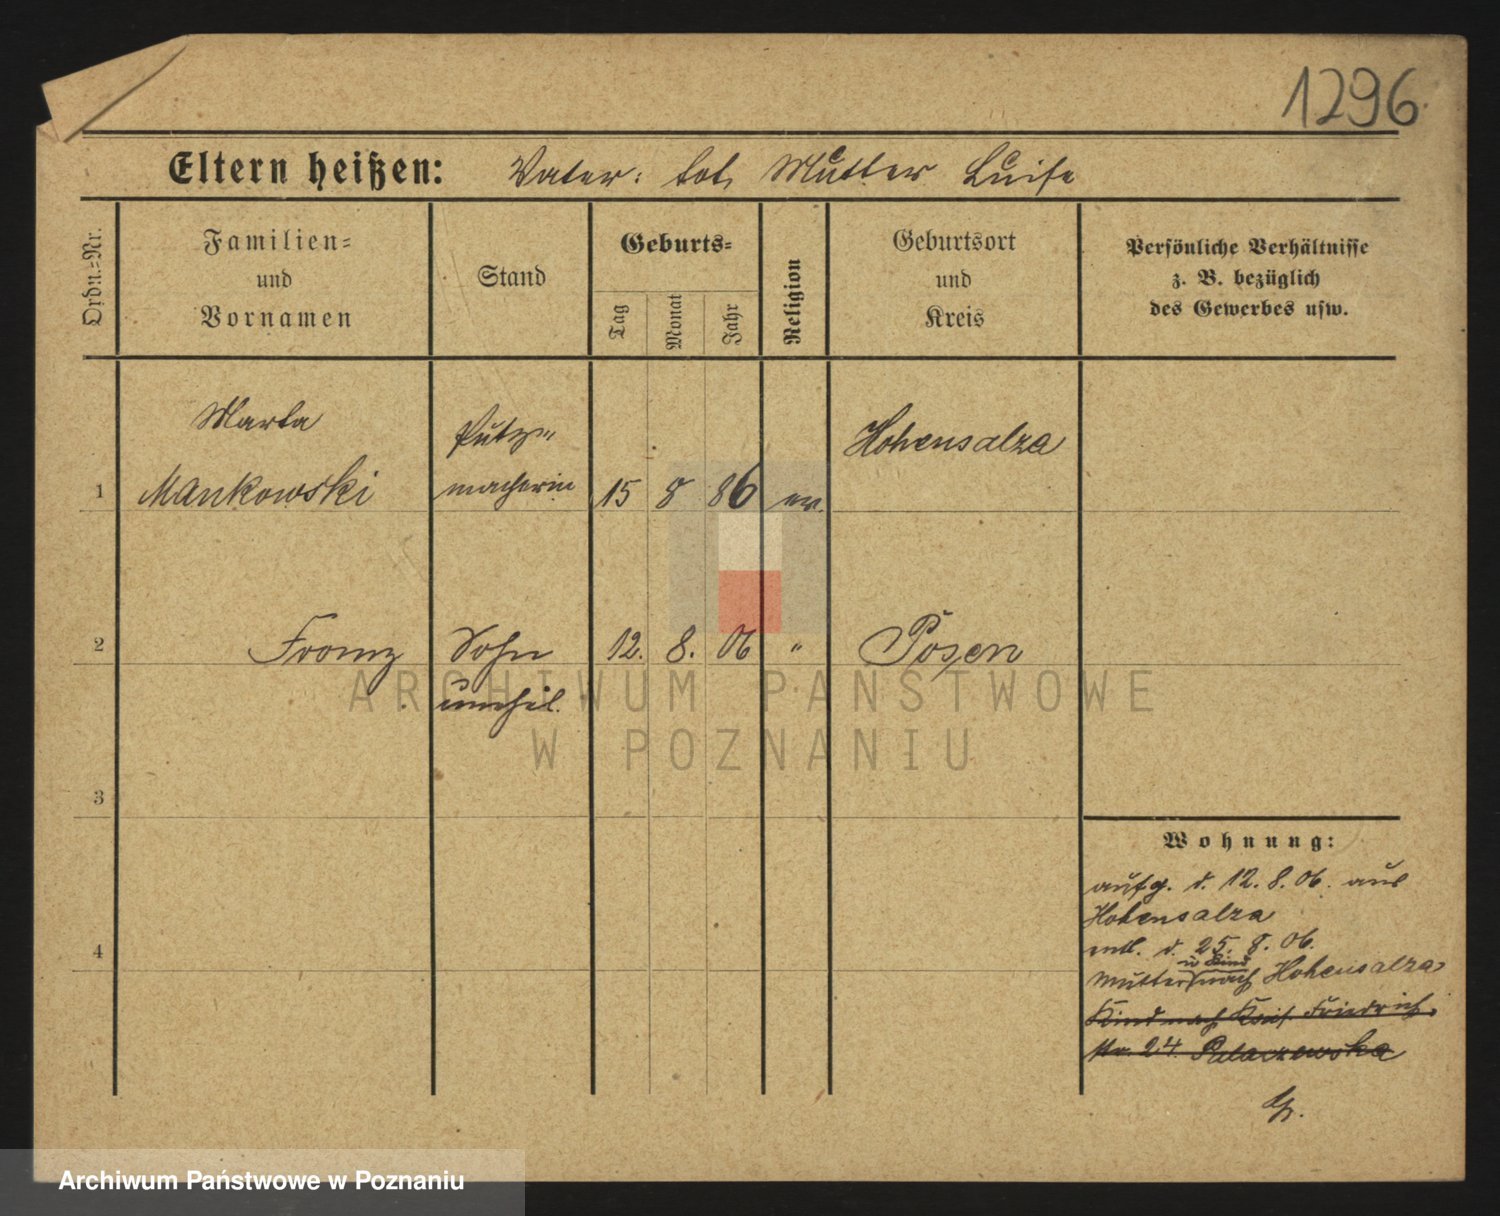 1296.
Eltern heißen: Vater: tot, Mutter Luise
Ordn.-Nr.
Familien-
und
Vornamen
Stand
Geburts-
Tag
Monat
Jahr
Religion
Geburtsort
und
Kreis
Persönliche Verhältnisse
z. B. bezüglich
des Gewerbes usw.
Marta
Putz-
Hohensalza
1 Mankowski macherin 15 8 86 ev.
2 Franz Sohn 12. 8. 06 " Posen
unehel.
ARCHIWUM PAŃSTWOWE
W POZNANIU
3
Wohnung:
aufg. d. 12. 8. 06. aus
Hohensalza
4
entl. d. 25. 8. 06.
u Kind
Mutter nach Hohensalza
Kind nach Friedrich
str. 24.
Archiwum Państwowe w Poznaniu